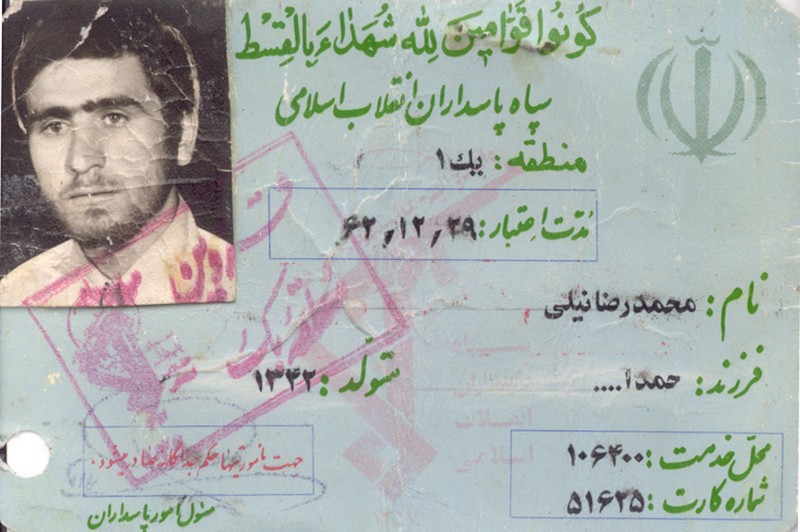 كُونُوا قَوَّامِينَ لِلّٰهِ شُهَدَاءَ بِالْقِسْطِ
سپاه پاسداران انقلاب اسلامی
منطقه: یک ۱
مُدّت اعتبار: ۶۲/۱۲/۲۹
نام: محمدرضا نیلی
فرزند: حمدا....
متولّد: ۱۳۴۲
سپاه
پاسداران
انقلاب
اسلامی
محلّ خدمت: ۱۰۶۴۰۰
شماره کارت: ۵۱۶۲۵
جهت مأموریتها حکم جداگانه صادر میشود.
مسئول امور پاسداران